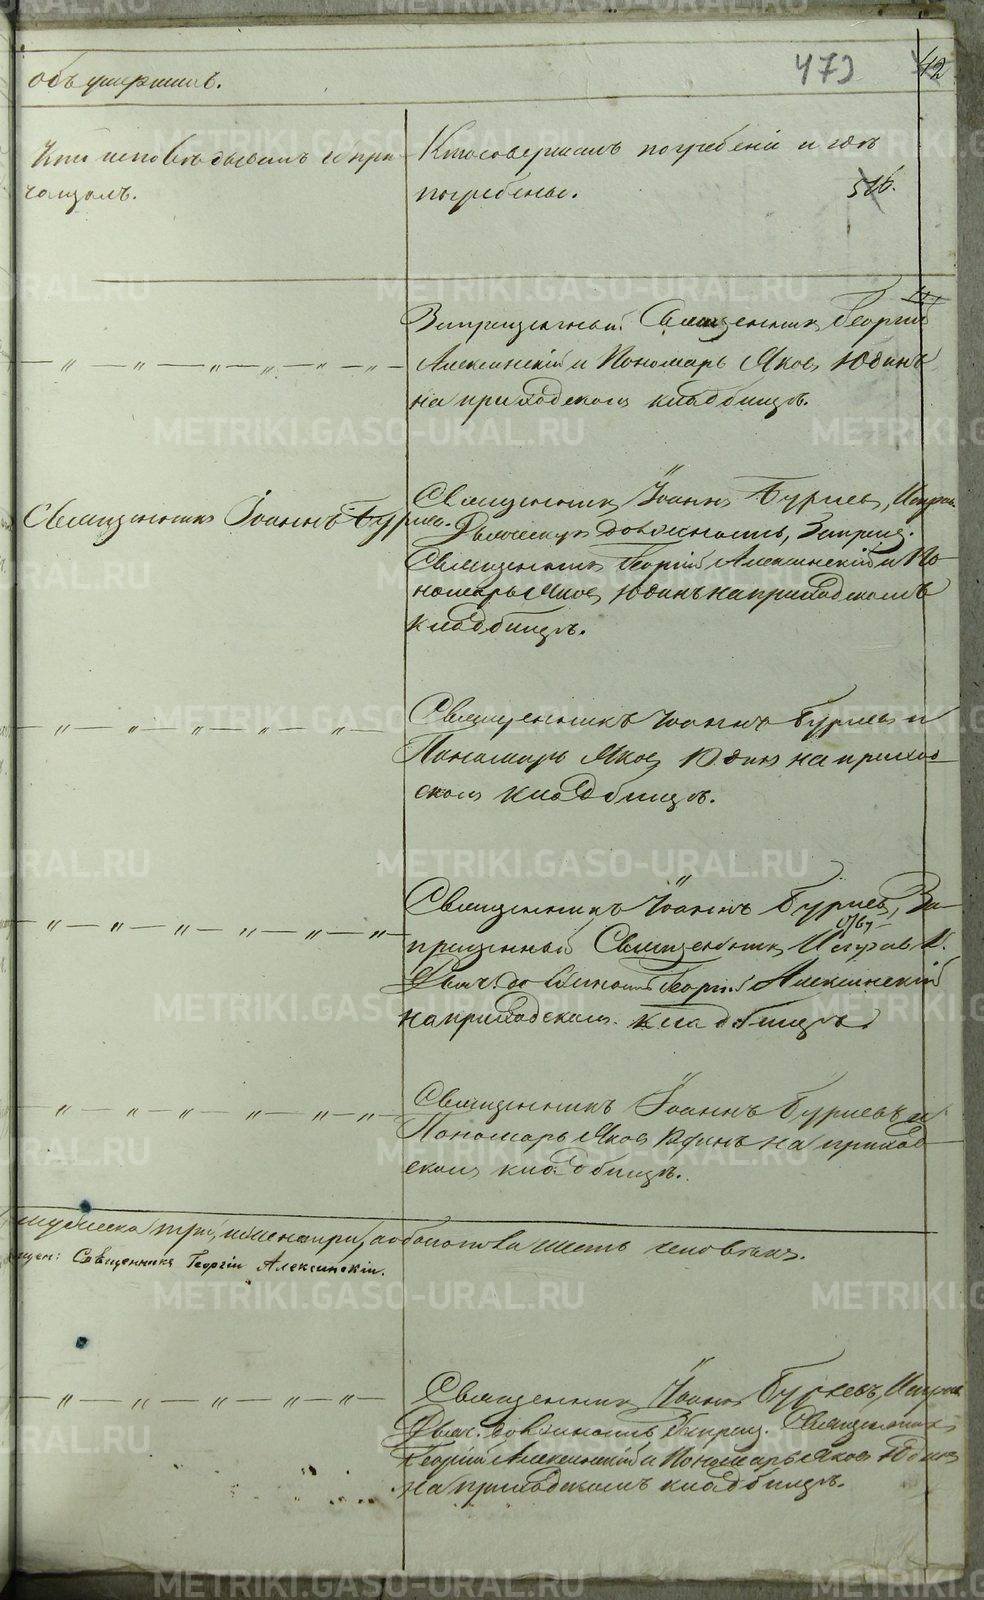 объ умершихъ.
473
42
Кто исповѣдывалъ и прі-
чащалъ.
Кто совершалъ погребеніе и гдѣ
погребены.
Запрещенный Священникъ Георгій
Алексинскій и Пономарь Яковъ Юдинъ
на приходскомъ кладбищѣ.
Священникъ Іоаннъ Буриевъ.
Священникъ Іоаннъ Буриевъ, Исправ.
Дьяческую должность, Запрещ.
Священникъ Георгій Алексинскій и По-
номарь Яковъ Юдинъ на приходскомъ
кладбищѣ.
Священникъ Іоаннъ Буриевъ и
Пономарь Яковъ Юдинъ на приход-
скомъ кладбищѣ.
Священникъ Іоаннъ Буриевъ, За-
прещенный Священникъ Исправ.
Дьяч. должность Георгій Алексинскій
на приходскомъ кладбищѣ.
Священникъ Іоаннъ Буриевъ и
Пономарь Яковъ Юдинъ на приход-
скомъ кладбищѣ.
мужеска три, женска три, а обоего пола шесть человѣкъ.
Священникъ Георгій Алексинскій.
Священникъ Іоаннъ Буриевъ, Исправ.
Дьяч. должность Запрещ. Священникъ
Георгій Алексинскій и Пономарь Яковъ Юдинъ
на приходскомъ кладбищѣ.
METRIKI.GASO-URAL.RU